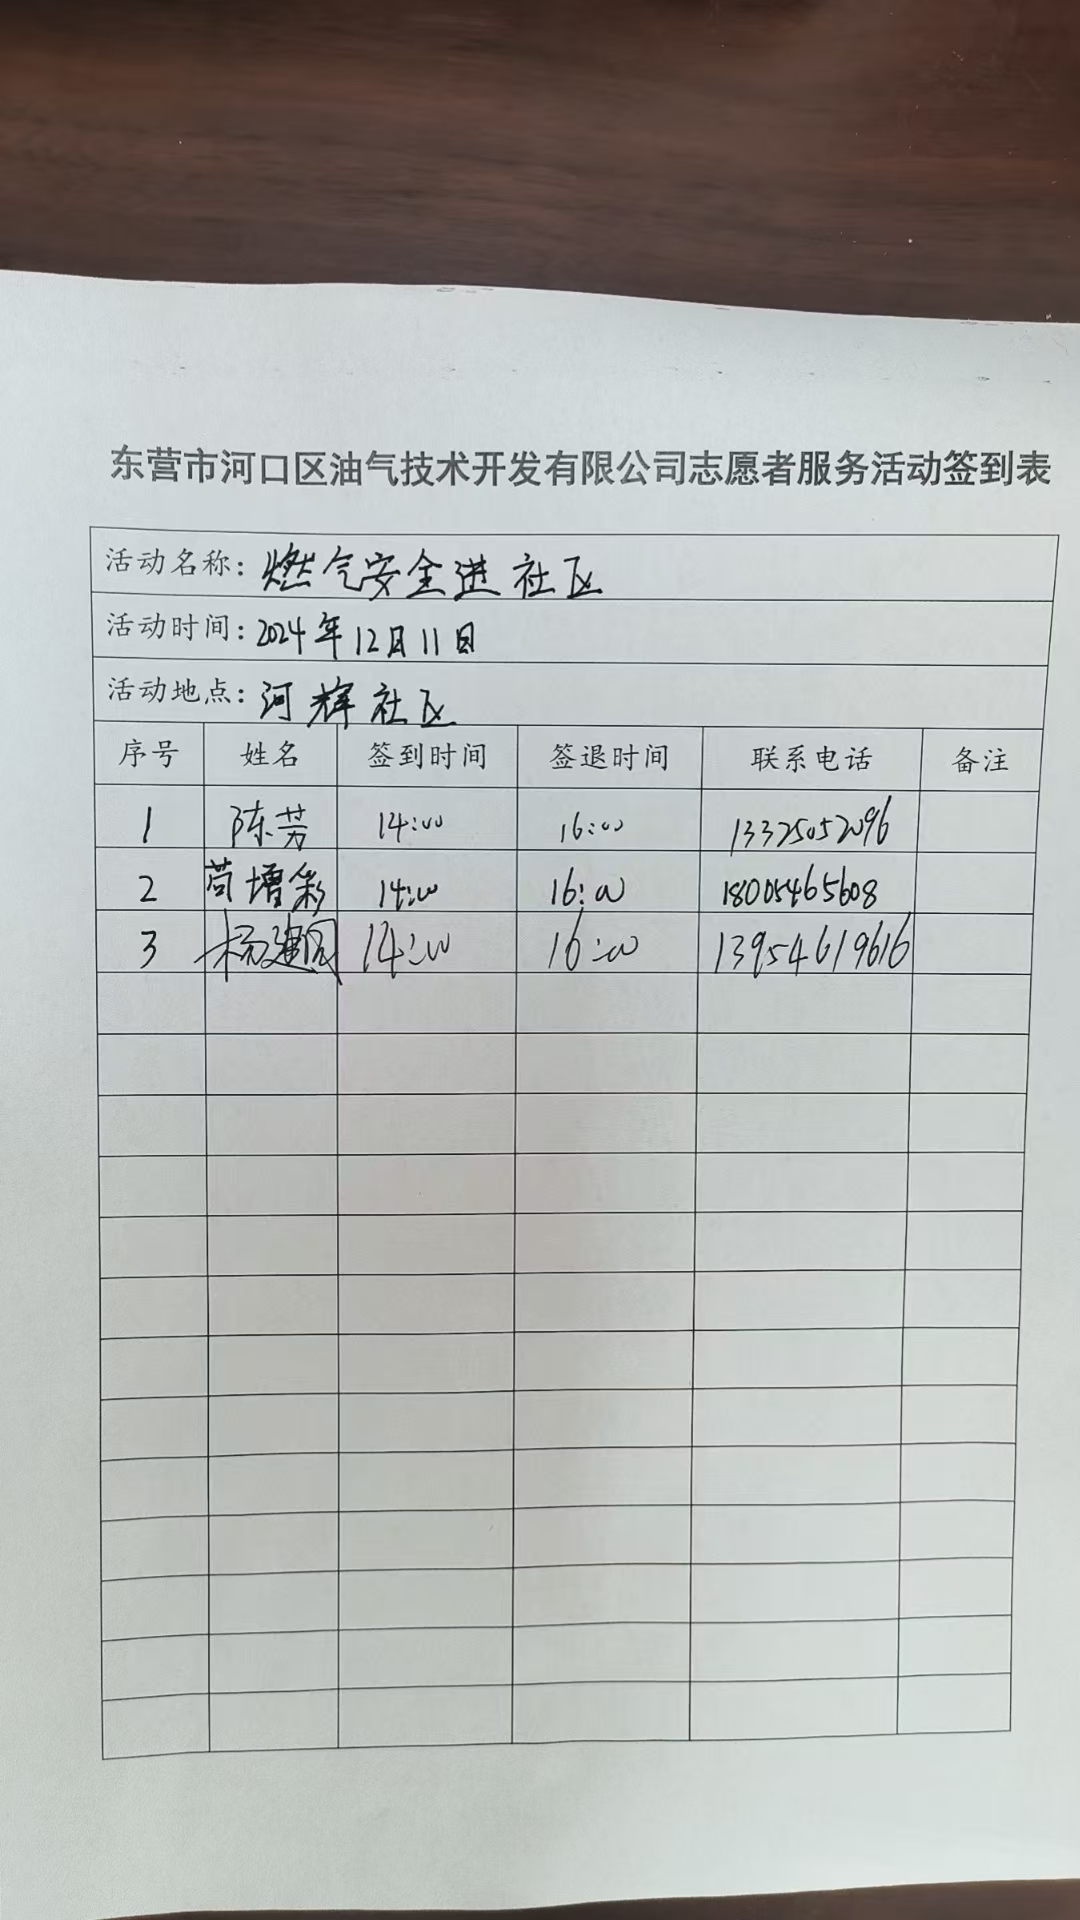 东营市河口区油气技术开发有限公司志愿者服务活动签到表
活动名称：燃气安全进社区
活动时间：2024年12月11日
活动地点：河辉社区
序号 姓名 签到时间 签退时间 联系电话 备注
1 陈芳 14:00 16:00 13325052096
2 苟增彩 14:00 16:00 18005465608
3 杨建国 14:00 16:00 13954619616